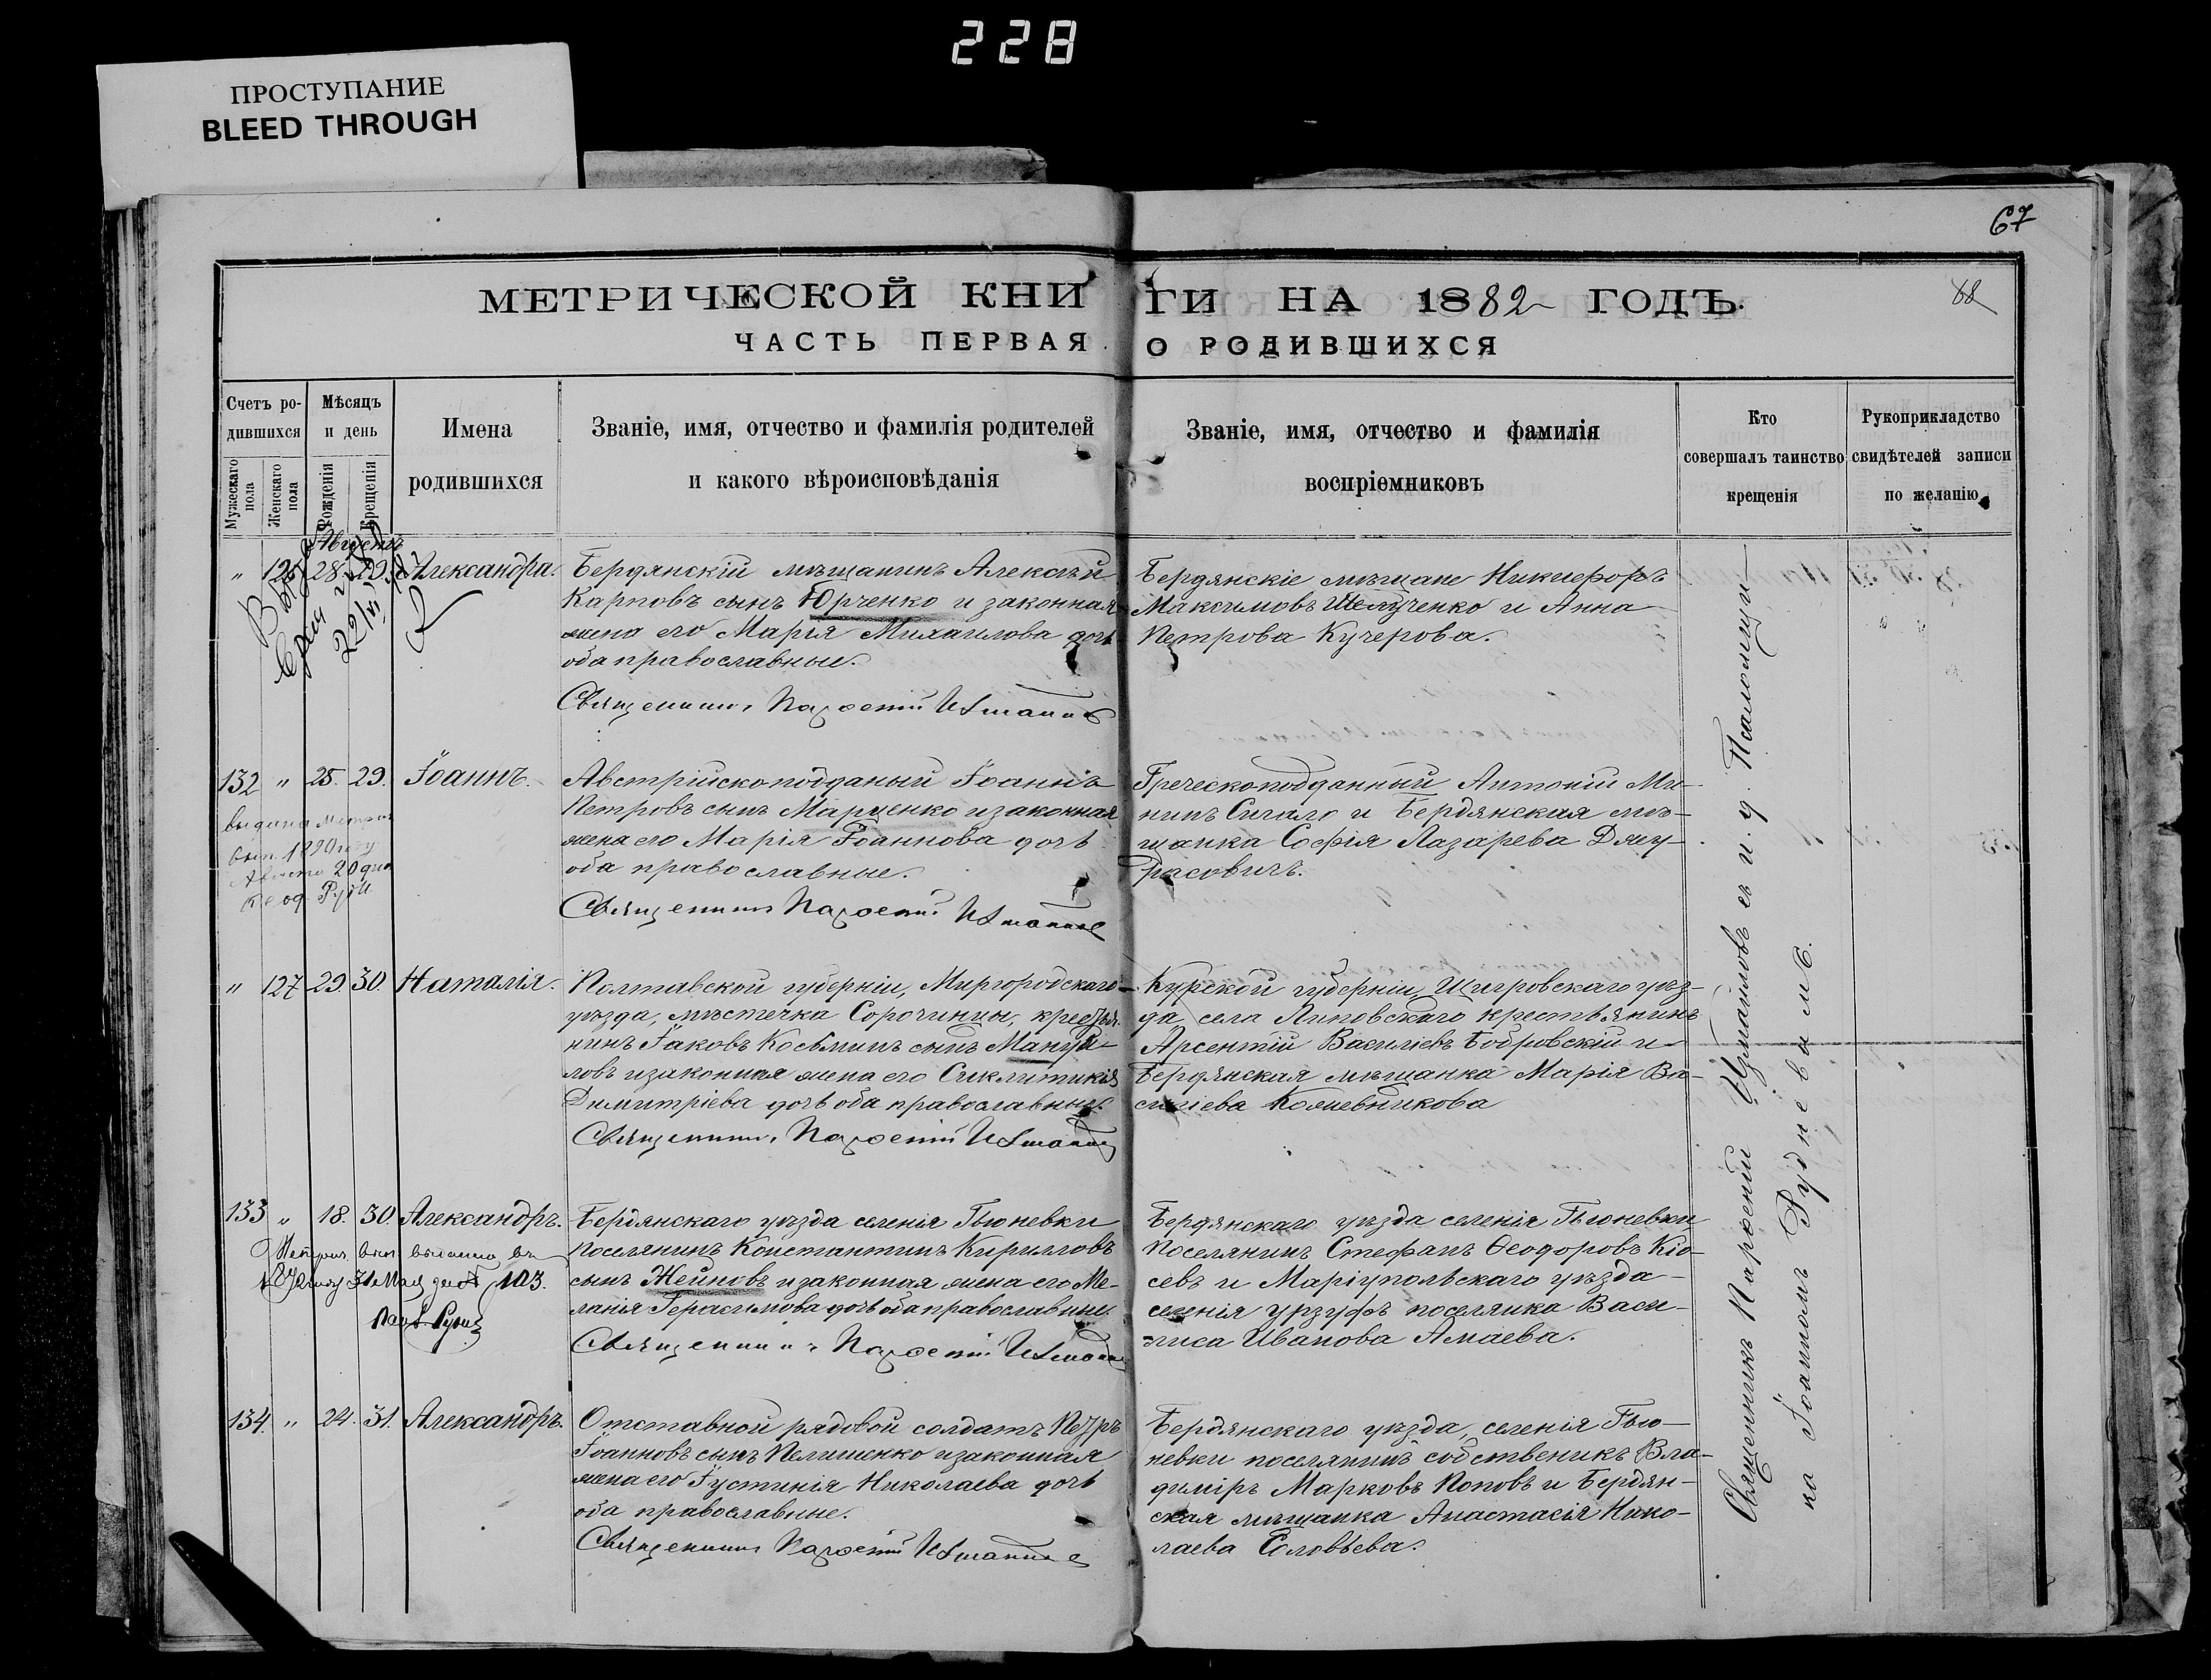 228
ПРОСТУПАНИЕ
BLEED THROUGH
67
88
МЕТРИЧЕСКОЙ КНИГИ НА 1882 ГОДЪ.
ЧАСТЬ ПЕРВАЯ О РОДИВШИХСЯ
Счетъ ро-
дившихся
Мужескаго пола
Женскаго пола
Мѣсяцъ
и день
Рожденія
Крещенія
Имена
родившихся
Званіе, имя, отчество и фамилія родителей
и какого вѣроисповѣданія
Званіе, имя, отчество и фамилія
воспріемниковъ
Кто
совершалъ таинство
крещенія
Рукоприкладство
свидѣтелей записи
по желанію
Августъ
" 126 28. 29. Александра.
Бердянскій мѣщанинъ Алексѣй
Карповъ сынъ Юрченко и законная
жена его Марія Михаилова дочь
оба православные.
Священникъ Паросній Изманловъ
Бердянскіе мѣщане Никифоръ
Максимовъ и Анна
Петрова Кучерова.
132 " 28. 29. Іоаннъ.
выдана метрич.
вып. 1890 году
Августа 20 дня
Австрійскоподданый Іоаннъ
Петровъ сынъ Марценко и законная
жена его Марія Іоаннова дочь
оба православные.
Священникъ
Греческоподданный Антоній Ми-
нинъ Сигало и Бердянская мѣ-
щанка Софія Лазарева Дму-
расовичъ.
" 127 29. 30. Наталія.
Полтавской губерніи, Миргородскаго
уѣзда, мѣстечка Сорочинцы, крестья-
нинъ Іаковъ Косьминъ сынъ Мануй-
ловъ и законная жена его Сиклитикія
Димитріева дочь оба православные.
Священникъ
Курской губерніи, Щигровскаго уѣз-
да села Липовскаго крестьянинъ
Арсентій Василіевъ Бобровскій и
Бердянская мѣщанка Марія Ва-
силіева Кожевникова
133 " 18. 30. Александръ.
Метрич. вып. выдана въ
103.
Бердянскаго уѣзда селенія Гьюневки
поселянинъ Константинъ Кирилловъ
сынъ Жейновъ и законная жена его Ме-
ланія Герасимова дочь оба православные.
Священникъ
Бердянскаго уѣзда селенія Гьюневки
поселянинъ Стефанъ Ѳеодоровъ Кіо-
севъ и Маріупольскаго уѣзда
селенія Урзуфъ поселянка Васи-
лиса Иванова Амаева.
134. " 24. 31. Александръ.
Отставной рядовой солдатъ Петръ
Іоанновъ сынъ Пелишенко и законная
жена его Іустинія Николаева дочь
оба православные.
Священникъ
Бердянскаго уѣзда, селенія Гью-
невки поселянинъ собственикъ Вла-
диміръ Марковъ Поповъ и Бердян-
ская мѣщанка Анастасія Нико-
лаева Соловьева.
Священникъ Измаиловъ съ и. д. Псаломщи-
ка Іоанномъ Рудневымъ.